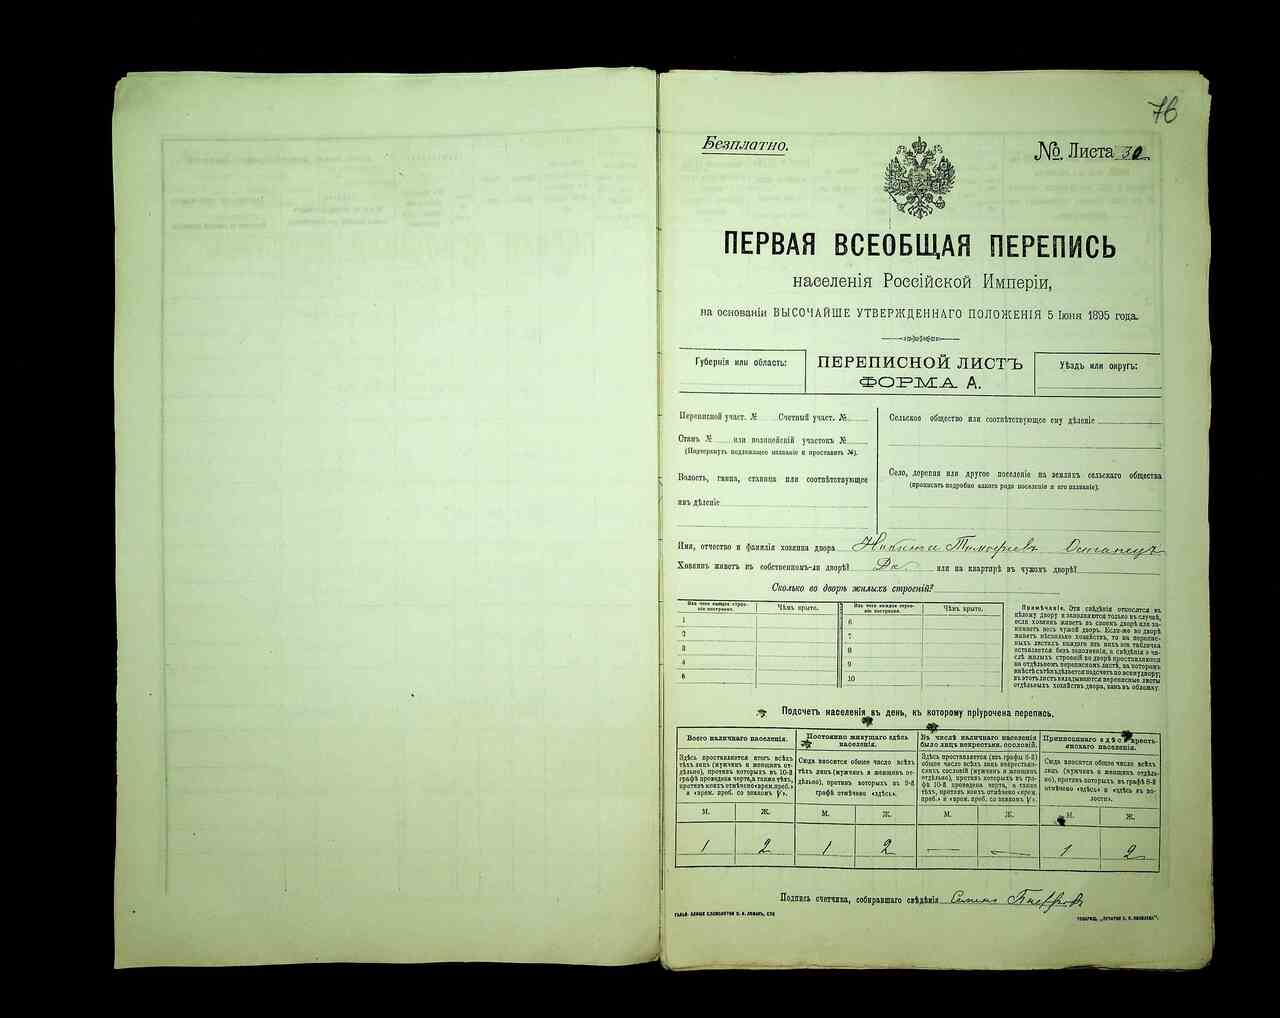 76
Безплатно.
№ Листа 30
ПЕРВАЯ ВСЕОБЩАЯ ПЕРЕПИСЬ
населенія Россійской Имперіи,
на основаніи ВЫСОЧАЙШЕ УТВЕРЖДЕННАГО ПОЛОЖЕНІЯ 5 Іюня 1895 года.
Губернія или область:
ПЕРЕПИСНОЙ ЛИСТЪ
ФОРМА А.
Уѣздъ или округъ:
Переписной участ. № Счетный участ. №
Станъ № или полицейскій участокъ №
(Подчеркнуть подлежащее названіе и проставить №).
Волость, гмина, станица или соотвѣтствующее
имъ дѣленіе
Сельское общество или соотвѣтствующее ему дѣленіе
Село, деревня или другое поселеніе на земляхъ сельскаго общества
(прописать подробно какого рода поселеніе и его названіе).
Имя, отчество и фамилія хозяина двора Никита Тимофеев
Хозяинъ живетъ въ собственномъ-ли дворѣ? Да. или на квартирѣ въ чужомъ дворѣ?
Сколько во дворѣ жилыхъ строеній?
Изъ чего каждое строе-
ніе построено.
Чѣмъ крыто.
Изъ чего каждое строе-
ніе построено.
Чѣмъ крыто.
1
2
3
4
5
6
7
8
9
10
Примѣчаніе. Эти свѣдѣнія относятся къ
цѣлому двору и заполняются только въ случаѣ,
если хозяинъ живетъ въ своемъ дворѣ или за-
нимаетъ весь чужой дворъ. Если-же во дворѣ
живетъ нѣсколько хозяйствъ, то на перепис-
ныхъ листахъ каждаго изъ нихъ эта табличка
оставляется безъ заполненія, а свѣдѣнія о чи-
слѣ жилыхъ строеній во дворѣ проставляются
на отдѣльномъ переписномъ листѣ, на которомъ
вмѣстѣ съ тѣмъ дѣлается подсчетъ по всему двору;
въ этотъ листъ вкладываются переписные листы
отдѣльныхъ хозяйствъ двора, какъ въ обложку.
Подсчетъ населенія въ день, къ которому пріурочена перепись.
Всего наличнаго населенія.
Здѣсь проставляется итогъ всѣхъ
тѣхъ лицъ (мужчинъ и женщинъ от-
дѣльно), противъ которыхъ въ 10-й
графѣ проведена черта, а также тѣхъ,
противъ коихъ отмѣчено «врем. преб.»
и «врем. преб. со знакомъ V».
Постоянно живущаго здѣсь
населенія.
Сюда вносится общее число всѣхъ
тѣхъ лицъ (мужчинъ и женщинъ от-
дѣльно), противъ которыхъ въ 9-й
графѣ отмѣчено «здѣсь».
Въ числѣ наличнаго населенія
было лицъ некрестьян. сословій.
Здѣсь проставляется (изъ графы 8-й)
общее число всѣхъ лицъ некрестьян-
скихъ сословій (мужчинъ и женщинъ
отдѣльно), противъ которыхъ въ гра-
фѣ 10-й проведена черта, а также
тѣхъ, противъ коихъ отмѣчено «врем.
преб.» и «врем. преб. со знакомъ V».
Приписаннаго здѣсь кресть-
янскаго населенія.
Сюда вносится общее число всѣхъ
лицъ (мужчинъ и женщинъ отдѣль-
но), противъ которыхъ въ графѣ 8-й
отмѣчено «здѣсь» и «здѣсь въ во-
лости».
М. Ж. М. Ж. М. Ж. М. Ж.
1 2 1 2 — — 1 2
Подпись счетчика, собиравшаго свѣдѣнія